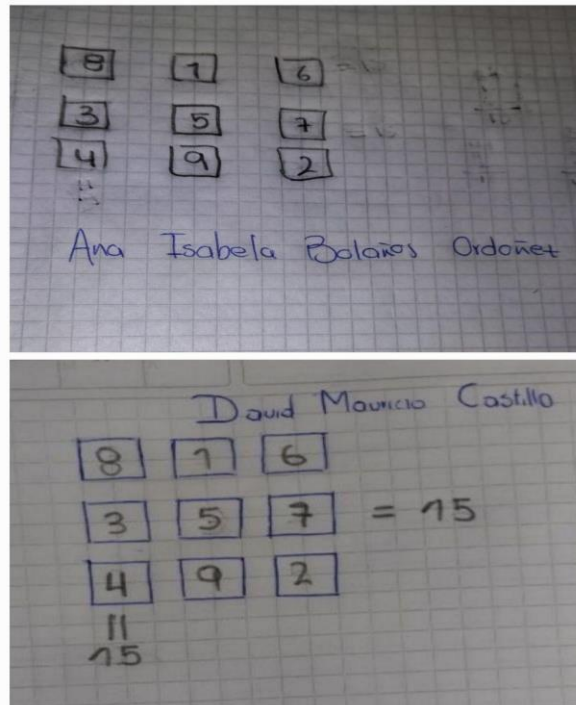 8 1 6
3 5 7
4 9 2
Ana Isabela Bolaños Ordoñez
David Mauricio Castillo
8 1 6
3 5 7 = 15
4 9 2
=
15